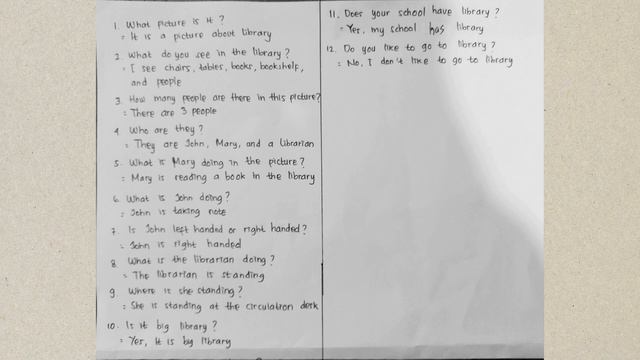 1. What picture is it ?
= It is a picture about library
2. What do you see in the library ?
= I see chairs, tables, books, bookshelf,
and people
3. How many people are there in this picture?
= There are 3 people
4. Who are they ?
= They are John, Mary, and a librarian
5. What is Mary doing in the picture ?
= Mary is reading a book in the library
6. What is John doing ?
= John is taking note
7. Is John left handed or right handed ?
= John is right handed
8. What is the librarian doing ?
= The librarian is standing
9. Where is she standing ?
= She is standing at the circulation desk
10. Is it big library ?
= Yes, it is big library
11. Does your school have library ?
= Yes, my school has library
12. Do you like to go to library ?
= No, I don't like to go to library